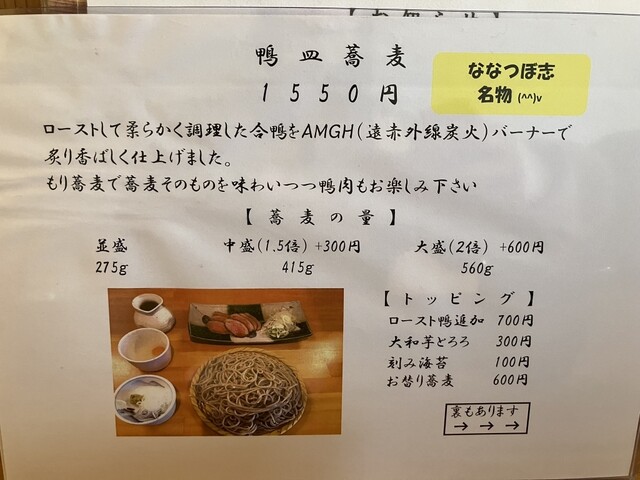 鴨皿蕎麦
1550円
ななつぼ志
名物(^^)v
ローストして柔らかく調理した合鴨をAMGH(遠赤外線炭火)バーナーで
炙り香ばしく仕上げました。
もり蕎麦で蕎麦そのものを味わいつつ鴨肉もお楽しみ下さい
【蕎麦の量】
並盛 中盛(1.5倍)+300円 大盛(2倍)+600円
275g 415g 560g
【トッピング】
ロースト鴨追加 700円
大和芋とろろ 300円
刻み海苔 100円
お替り蕎麦 600円
裏もあります
→ → →